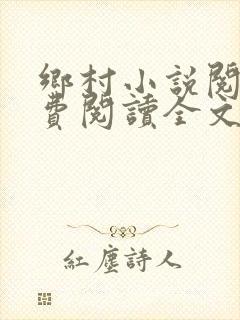 鄉村小説閱
費閱讀全文
紅塵詩人